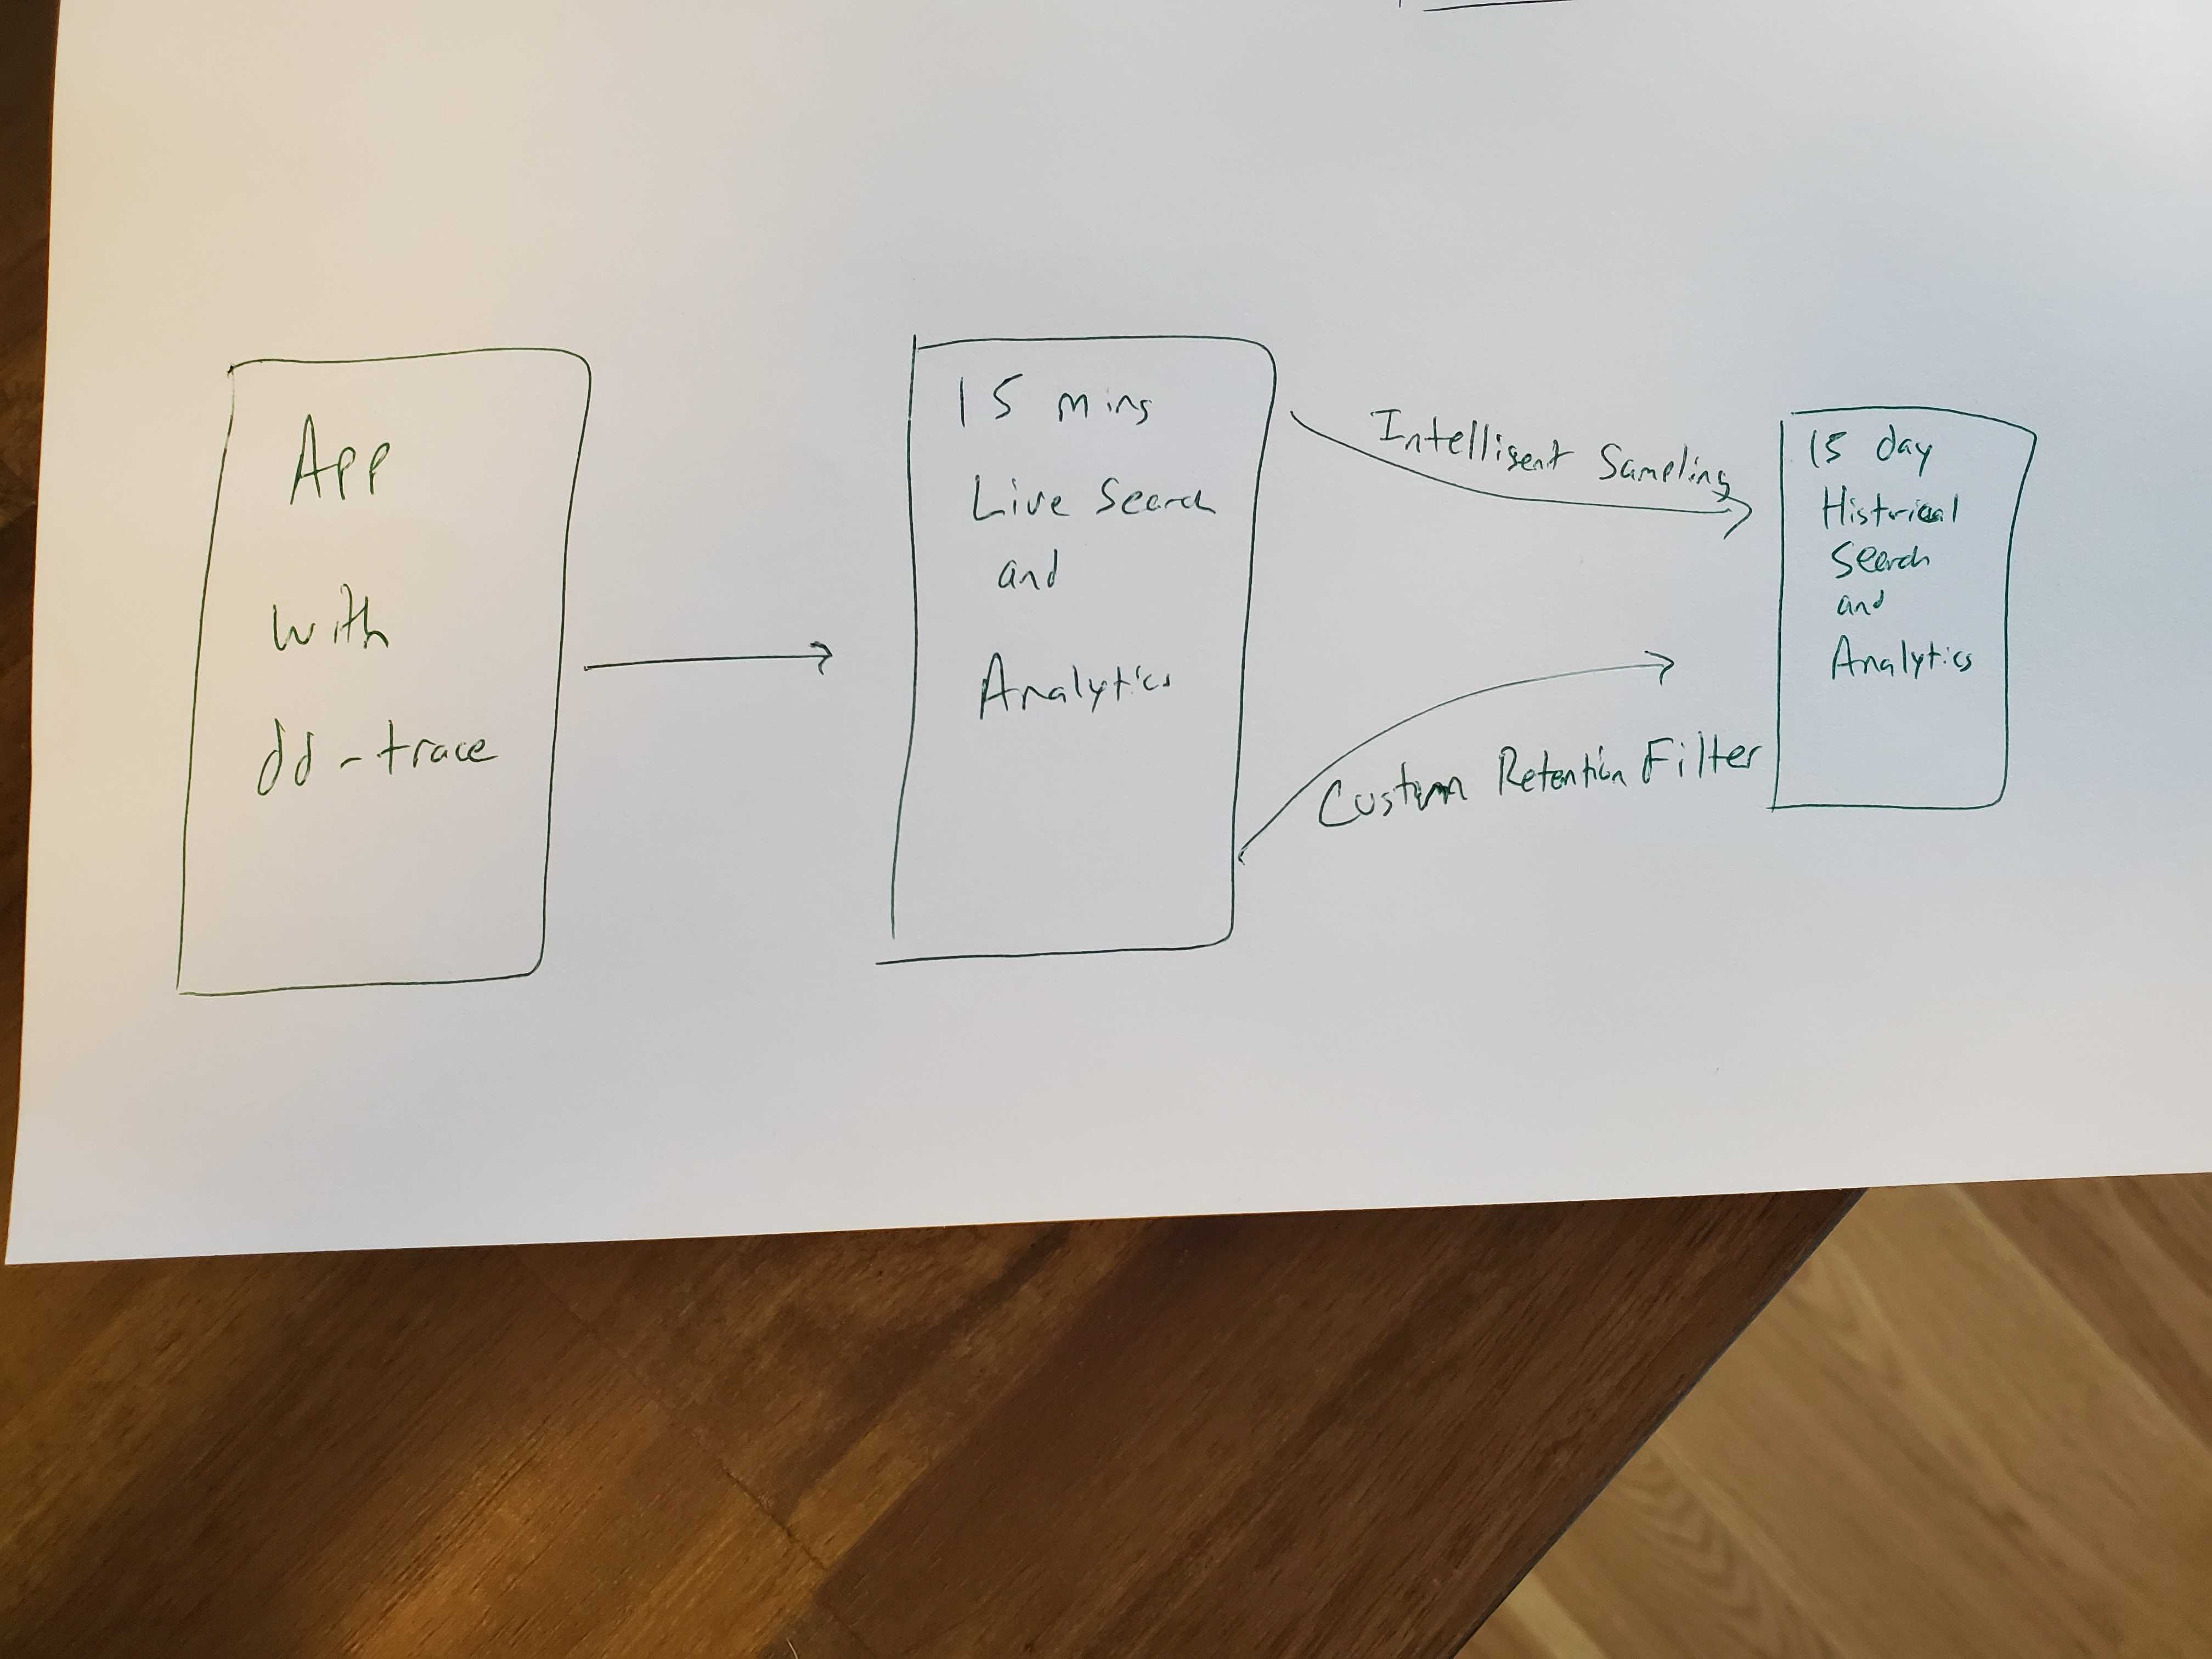 App
with
dd-trace
15 mins
Live Search
and
Analytics
Intelligent Sampling
Custom Retention Filter
15 day
Historical
Search
and
Analytics